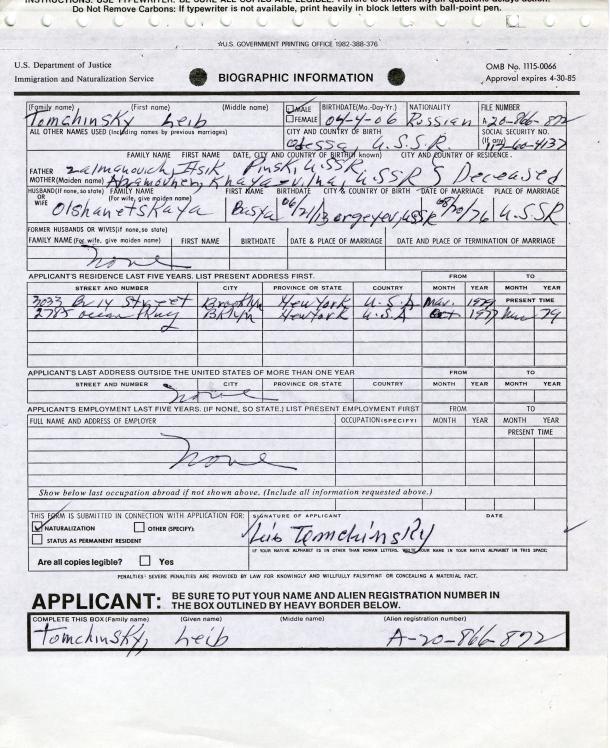 INSTRUCTIONS: USE TYPEWRITER. BE SURE ALL COPIES ARE LEGIBLE. Failure to answer fully all questions delays action.
Do Not Remove Carbons: If typewriter is not available, print heavily in block letters with ball-point pen.
☆U.S. GOVERNMENT PRINTING OFFICE 1982-388-376
U.S. Department of Justice
Immigration and Naturalization Service
BIOGRAPHIC INFORMATION
OMB No. 1115-0066
Approval expires 4-30-85
(Family name) (First name) (Middle name)
Tomchinsky Leib
MALE
FEMALE
BIRTHDATE(Mo.-Day-Yr.)
04-4-06
NATIONALITY
Russian
FILE NUMBER
A 20-866-872
ALL OTHER NAMES USED (Including names by previous marriages)
CITY AND COUNTRY OF BIRTH
Odessa, U.S.S.R.
SOCIAL SECURITY NO.
(If any)
FAMILY NAME FIRST NAME DATE, CITY AND COUNTRY OF BIRTH(If known) CITY AND COUNTRY OF RESIDENCE.
FATHER Zalmanovich, Itsik Pinsk, USSR
MOTHER(Maiden name) Khaya USSR Deceased
HUSBAND(If none, so state) OR WIFE FAMILY NAME (For wife, give maiden name) FIRST NAME BIRTHDATE CITY & COUNTRY OF BIRTH DATE OF MARRIAGE PLACE OF MARRIAGE
Olshanetskaya Basya 06/21/13 USSR U.S.S.R
FORMER HUSBANDS OR WIVES(if none, so state)
FAMILY NAME (For wife, give maiden name) FIRST NAME BIRTHDATE DATE & PLACE OF MARRIAGE DATE AND PLACE OF TERMINATION OF MARRIAGE
none
APPLICANT'S RESIDENCE LAST FIVE YEARS. LIST PRESENT ADDRESS FIRST. FROM TO
STREET AND NUMBER CITY PROVINCE OR STATE COUNTRY MONTH YEAR MONTH YEAR
3033 Street Brooklyn New York U.S.A Mar. 1979 PRESENT TIME
2785 Ocean Pkwy Bklyn New York U.S.A Oct 1977 Mar 79
APPLICANT'S LAST ADDRESS OUTSIDE THE UNITED STATES OF MORE THAN ONE YEAR FROM TO
STREET AND NUMBER CITY PROVINCE OR STATE COUNTRY MONTH YEAR MONTH YEAR
none
APPLICANT'S EMPLOYMENT LAST FIVE YEARS. (IF NONE, SO STATE.) LIST PRESENT EMPLOYMENT FIRST FROM TO
FULL NAME AND ADDRESS OF EMPLOYER OCCUPATION(SPECIFY) MONTH YEAR MONTH YEAR
PRESENT TIME
none
Show below last occupation abroad if not shown above. (Include all information requested above.)
THIS FORM IS SUBMITTED IN CONNECTION WITH APPLICATION FOR:
NATURALIZATION OTHER (SPECIFY):
STATUS AS PERMANENT RESIDENT
SIGNATURE OF APPLICANT DATE
Leib Tomchinsky
IF YOUR NATIVE ALPHABET IS IN OTHER THAN ROMAN LETTERS, WRITE YOUR NAME IN YOUR NATIVE ALPHABET IN THIS SPACE:
Are all copies legible? Yes
PENALTIES: SEVERE PENALTIES ARE PROVIDED BY LAW FOR KNOWINGLY AND WILLFULLY FALSIFYING OR CONCEALING A MATERIAL FACT.
APPLICANT: BE SURE TO PUT YOUR NAME AND ALIEN REGISTRATION NUMBER IN
THE BOX OUTLINED BY HEAVY BORDER BELOW.
COMPLETE THIS BOX (Family name) (Given name) (Middle name) (Alien registration number)
Tomchinsky, Leib A-20-866-872